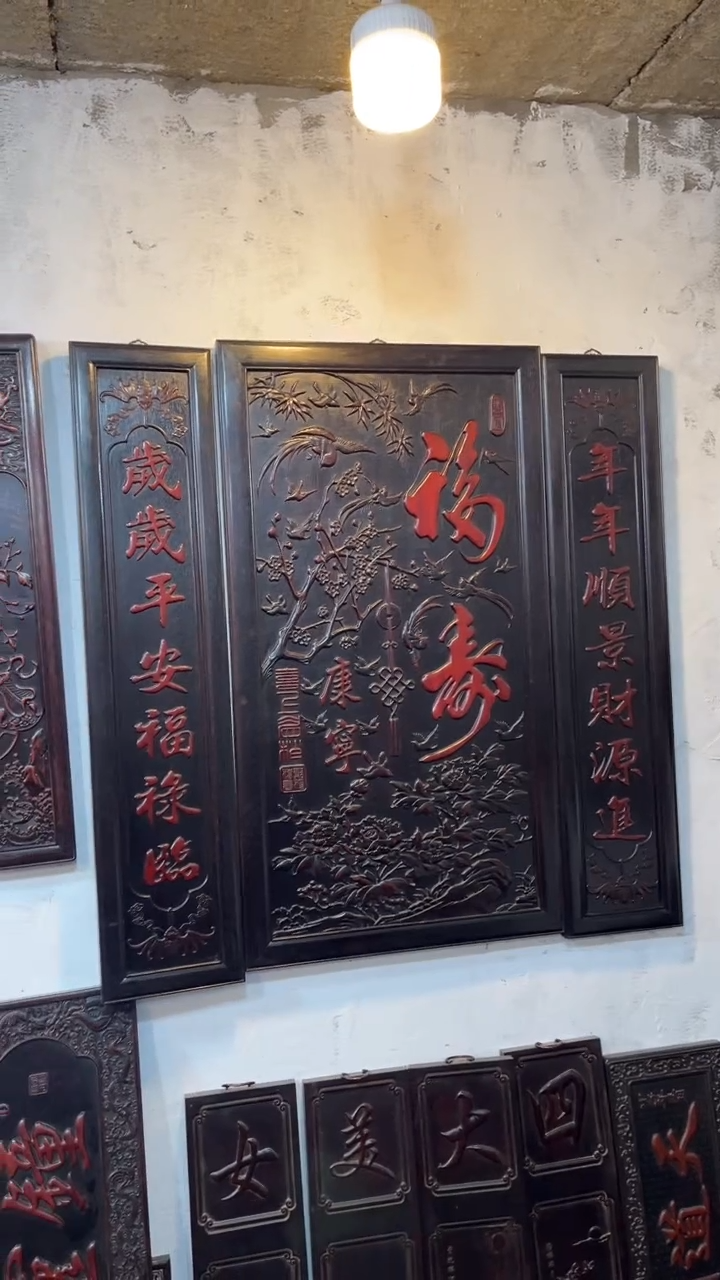 年年順景財源進
福壽
康寧
歲歲平安福祿臨
四大美女
天道